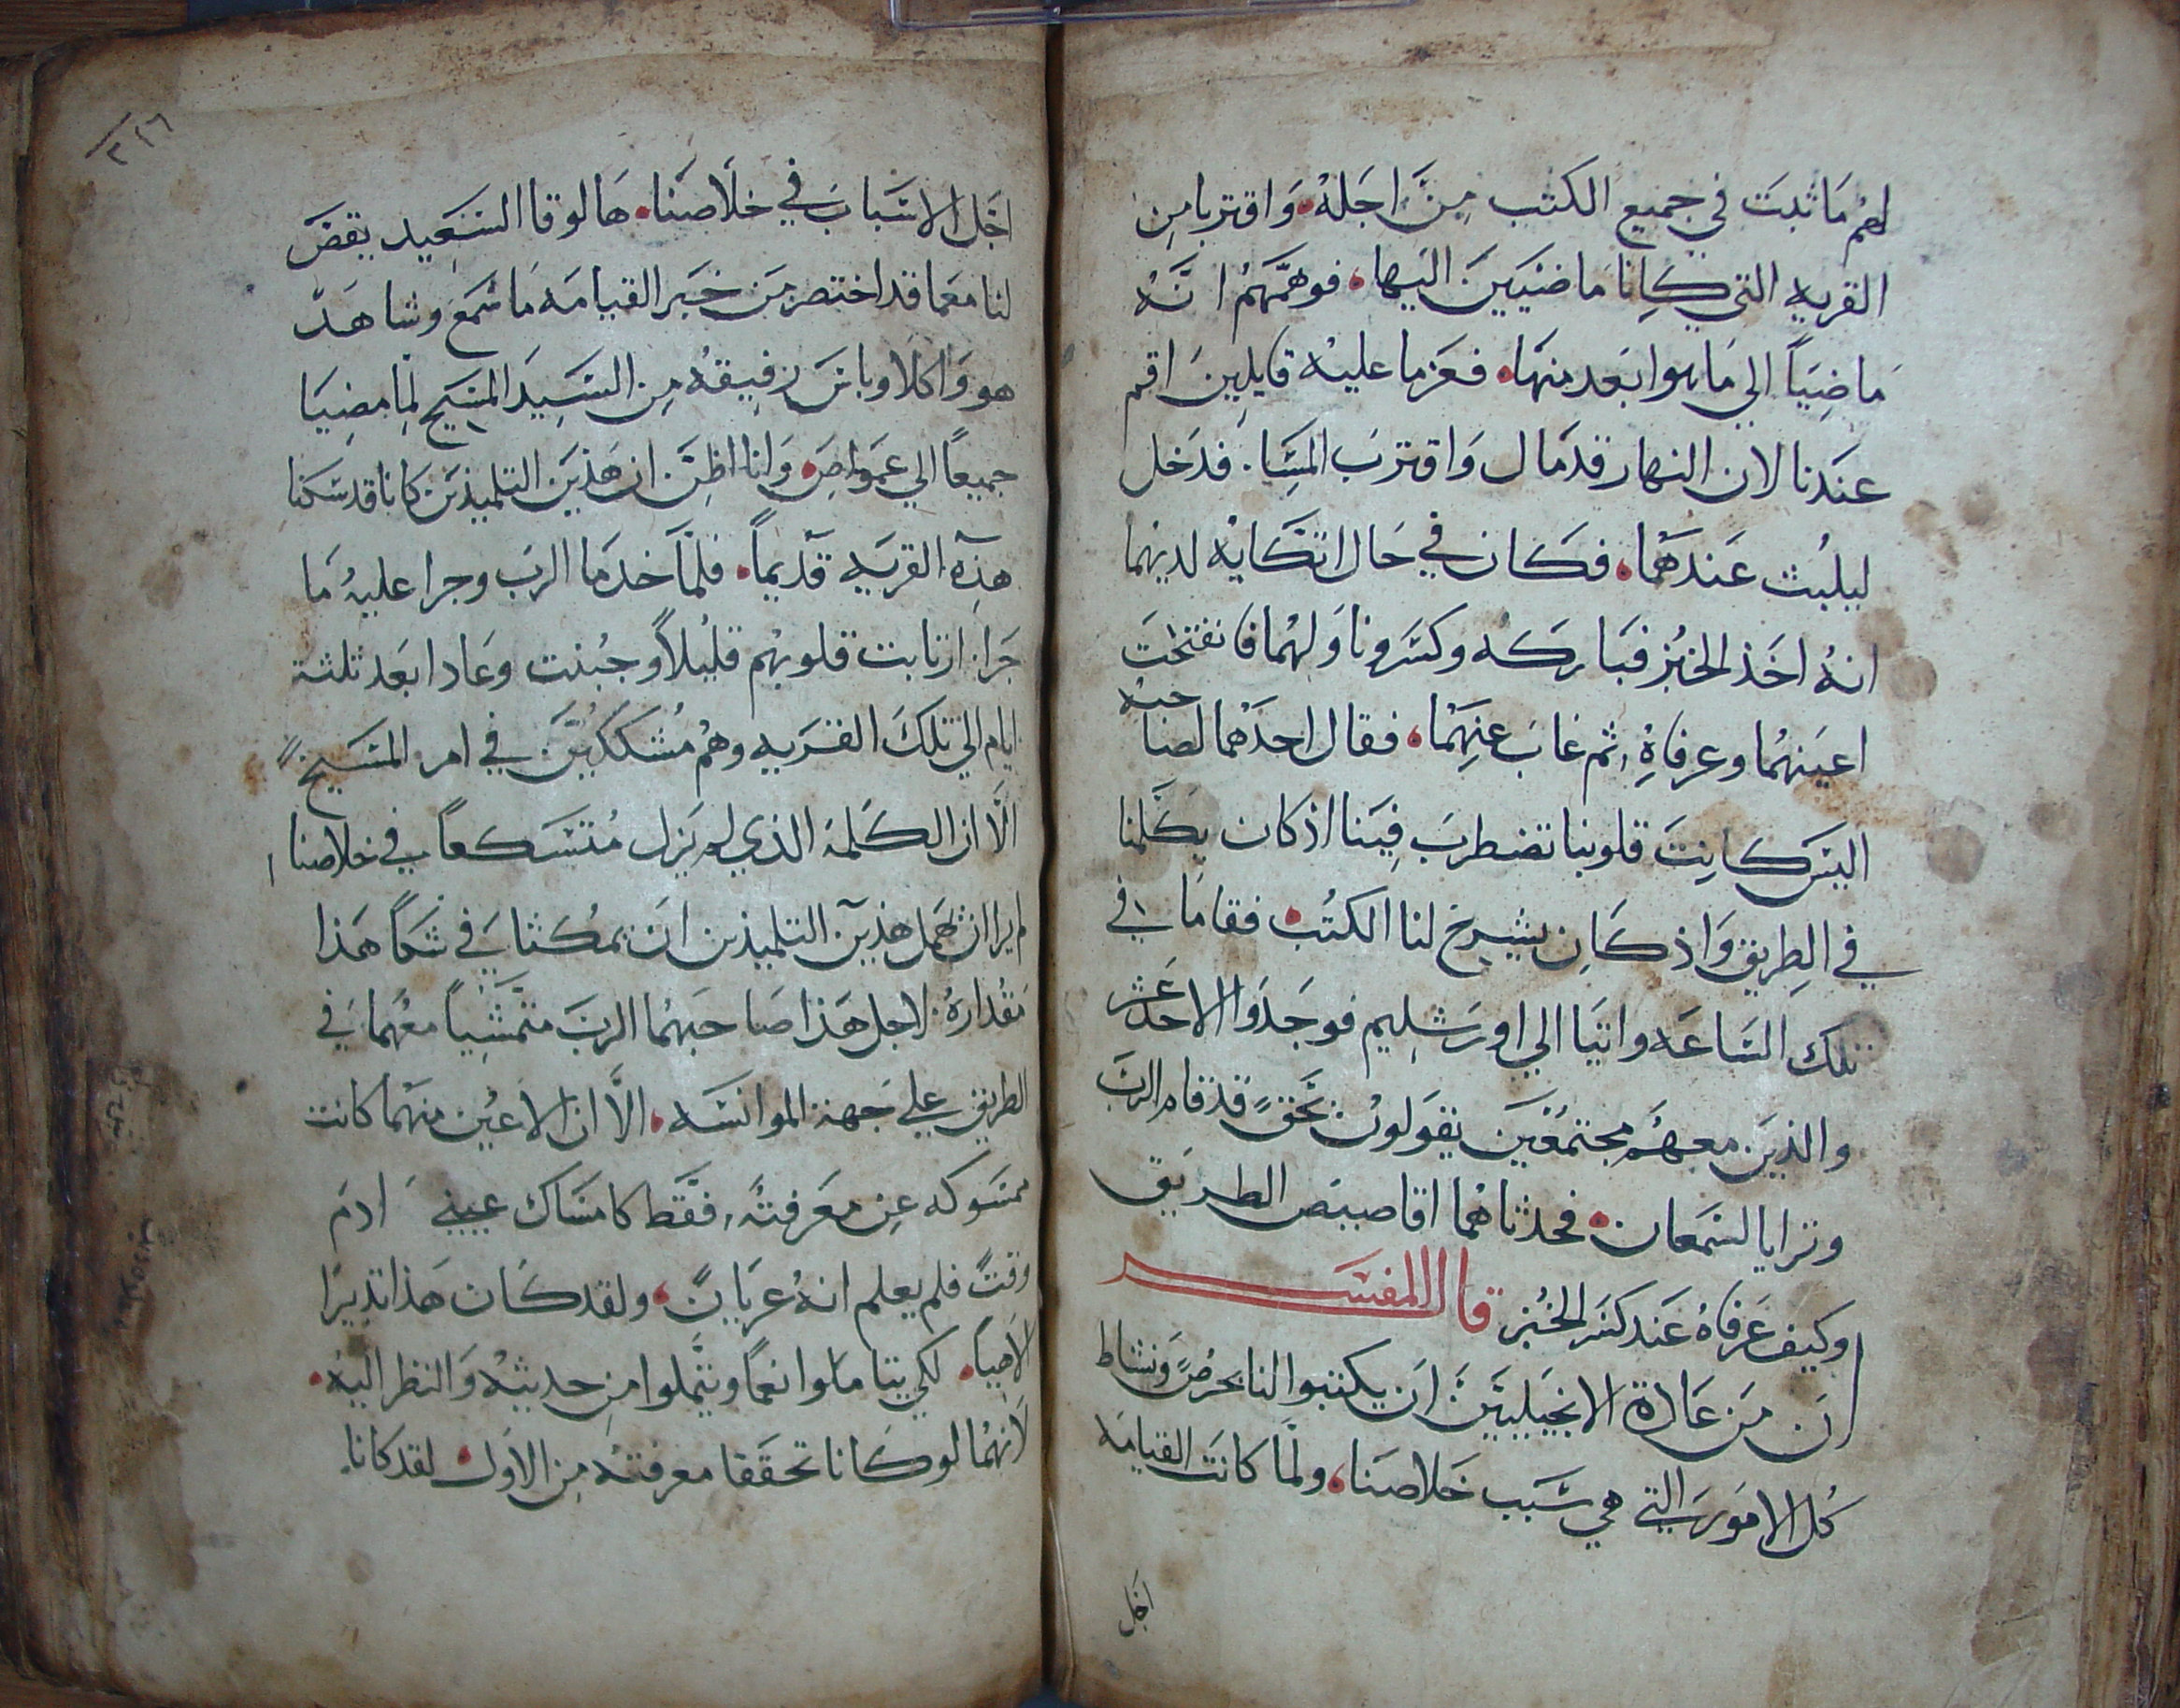 لهم ما ثبت في جميع الكتب من اجله واقتربا من
القريه التي كانا ماضيين اليها فوهمهم انه
ماضياً الي ما هو ابعد منها فعزما عليه قايلين اقم
عندنا لان النهار قد مال واقترب المسا فدخل
ليلبث عندهما فكان في حال اتكايه لديهما
انه اخذ الخبز فباركه وكسر وناولهما فانفتحت
اعينهما وعرفاه ثم غاب عنهما فقال احدهما لصاحبه
اليس كانت قلوبنا تضطرب فينا اذ كان يكلمنا
في الطريق واذ كان يشرح لنا الكتب فقاما في
تلك الساعه واتيا الي اورشليم فوجدوا الاحد عشر
والذين معهم مجتمعين يقولون بحق قد قام الرب
وترايا لسمعان فحدثاهما اقاصيص الطريق
وكيف عرفاه عند كسر الخبز قال المفسر
ان من عادة الانجيليين ان يكتبوا لنا بحرص ونشاط
كل الامور التي هي سبب خلاصنا ولما كانت القيامه
اجل
٢٢٦
اجل الاسباب في خلاصنا هالوقا السعيد يقص
لنا معما قد اختصر من خبر القيامه ما سمع وشاهد
هو واكلاوباس رفيقه من السيد المسيح لما مضيا
جميعاً الي عمواص وانا اظن ان هذين التلميذين كانا قد سكنا
هذه القريه قديماً فلما خدما الرب وجرا عليه ما
جرا ارتابت قلوبهم قليلاً وجبنت وعادا بعد ثلثة
ايام الي تلك القريه وهم مشككين في امر المسيح
الا ان الكلمة الذي لم يزل متسكعاً في خلاصنا
لم يرا ان يهمل هذين التلميذين ان يمكثا في شكا هذا
مقداره لاجل هذا صاحبهما الرب متمشياً معهما في
الطريق علي جهة الموانسه الا ان الاعين منهما كانت
ممسوكه عن معرفته فقط كامساك عيني ادم
وقت فلم يعلم انه عريان ولقد كان هذا تدبيرا
لاهياً لكي يتاملوا نعماً ويتملوا من حديثه والنظر اليه
لانهما لو كانا تحققا معرفته من الاول لقد كانا